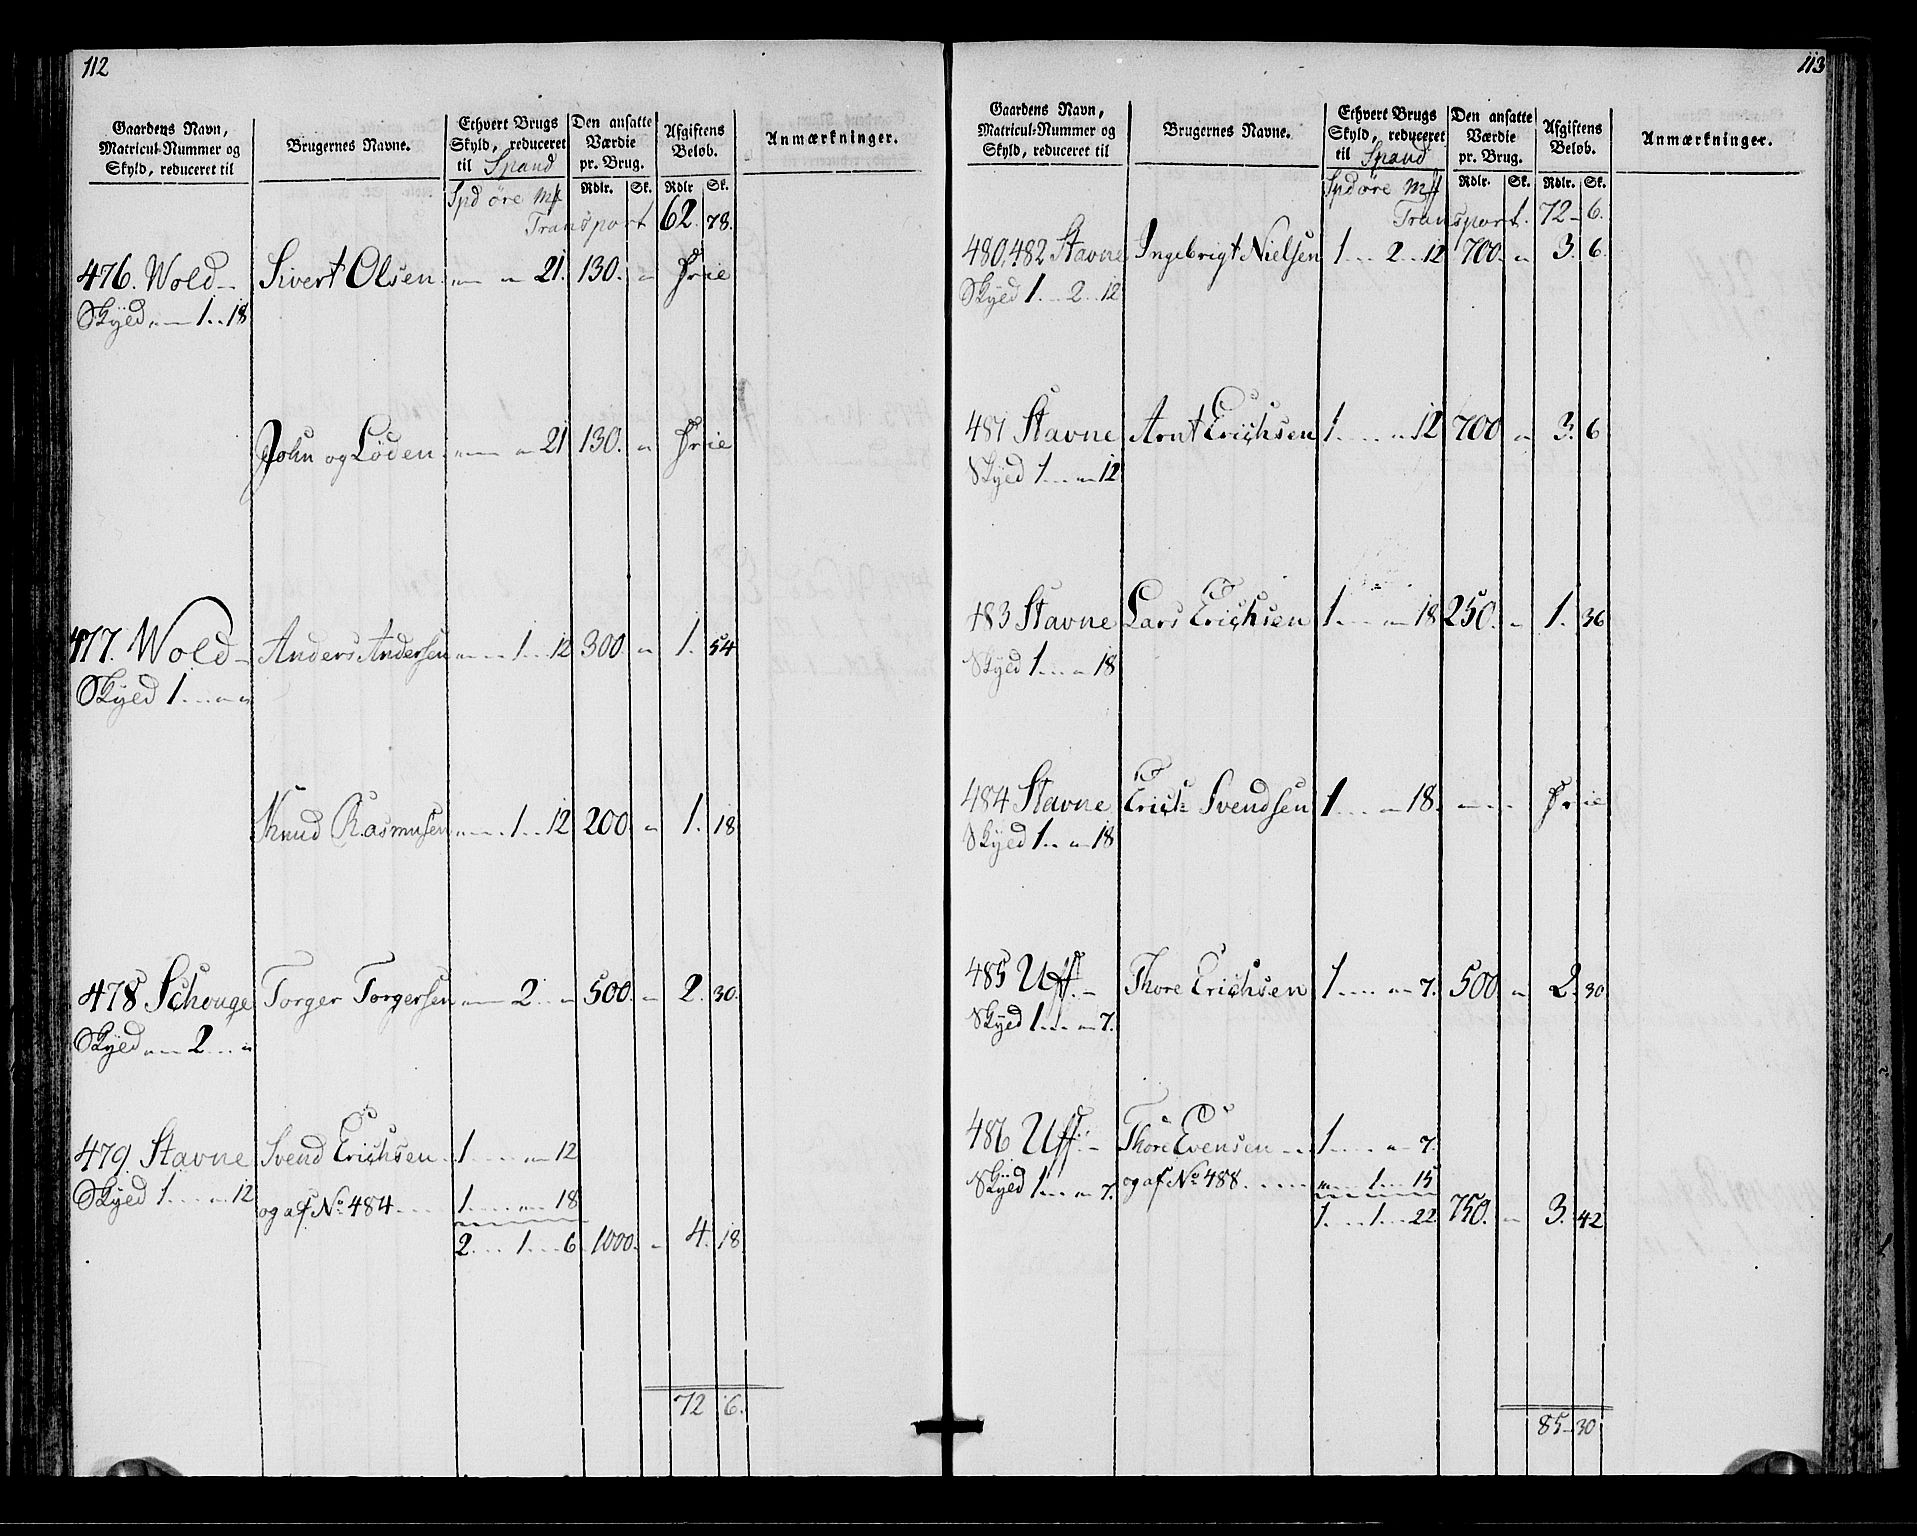 112
Gaardens Navn, Matricul-Nummer og Skyld, reduceret til
Brugernes Navne.
Ethvert Brugs Skyld, reduceret til Spand
Den ansatte Værdie pr. Brug.
Afgiftens Beløb.
Anmærkninger.
Spd øre Mk Rdlr. Sk. Rdlr Sk.
Transport 62. 78.
476. Wold Sivert Olsen 21. 130. Frie
Skyld 1 18
John og Löden 21 130. Frie
477. Wold Anders Andersen 1 12 300 1. 54
Skyld 1
Knud Rasmusen 1 12 200 1. 18
478 Schouge Torger Torgersen 2 500. 2. 30.
Skyld 2
479. Stavne Svend Erichsen 1 12
Skyld 1 12 og af No. 484 1 18
2 1 6 1000. 4. 18
72 6.
113
Gaardens Navn, Matricul-Nummer og Skyld, reduceret til
Brugernes Navne.
Ethvert Brugs Skyld, reduceret til Spand
Den ansatte Værdie pr. Brug.
Afgiftens Beløb.
Anmærkninger.
Spd øre Mk Rdlr. Sk. Rdlr. Sk.
Transport. 72 6.
480, 482 Stavne Ingebrigt Nielsen 1 2 12 700. 3. 6.
Skyld 1 2 12
481 Stavne Arnt Erichsen 1 12 700 3. 6
Skyld 1 12
483 Stavne Lars Erichsen 1 18 250. 1. 36
Skyld 1 18
484 Stavne Erich Svendsen 1 18. Frie
Skyld 1 18
485 Uff. Thore Erichsen 1 7. 500 2. 30
Skyld 1 7.
486. Uff. Thore Evensen 1 7.
Skyld 1 7. og af No. 488 1 15
1 1 22 750. 3. 42
85 30